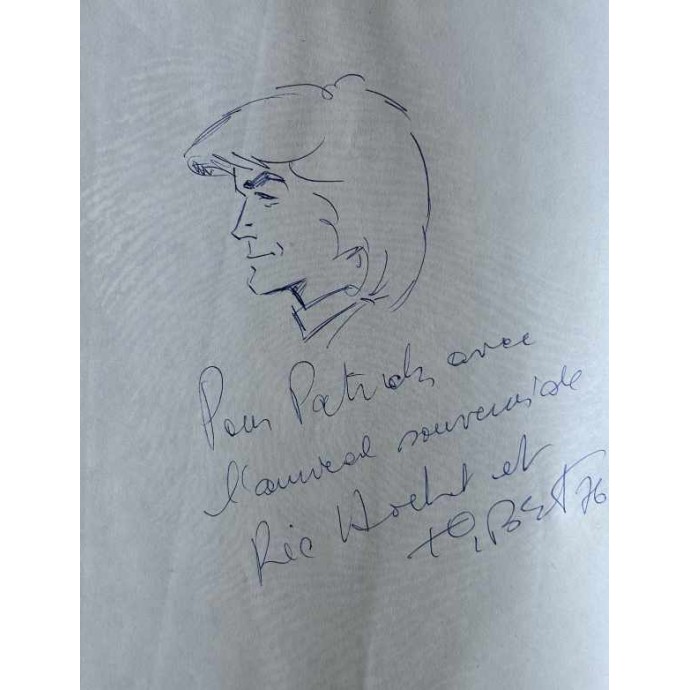 Pour Patrick, avec
l'amical souvenir de
Ric Hochet et
Tibet 76